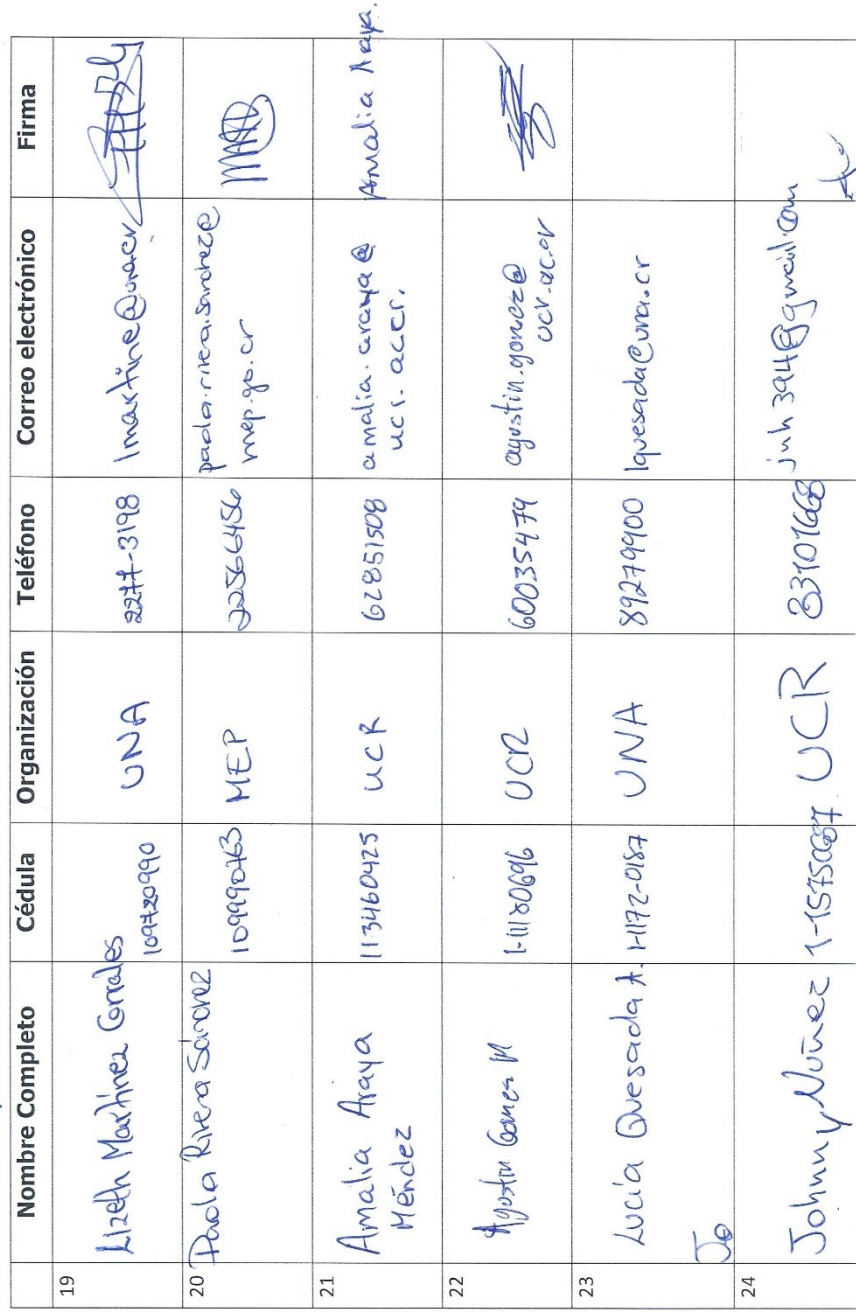 Nombre Completo Cédula Organización Teléfono Correo electrónico Firma
19 Lizeth Martínez Corrales 109720990 UNA 2277-3198 lmartine@una.cr
20 Paola Rivera Sánchez 109990763 MEP 22566456 paola.rivera.sanchez@
mep.go.cr
21 Amalia Araya 113460425 UCR 62851508 amalia.araya@ Amalia Araya.
Méndez ucr.ac.cr.
22 Agustin Gomez M 1-11180696 UCR 60035479 agustin.gomez@
ucr.ac.cr
23 Lucía Quesada A. 1-1172-0187 UNA 89279900 lquesada@una.cr
Jo
24 Johnny Núñez UCR jnh394@gmail.com